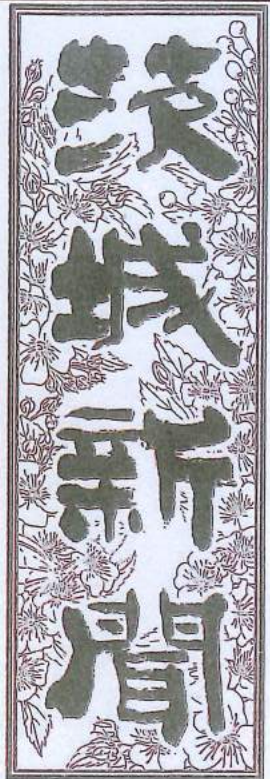 茨城新聞